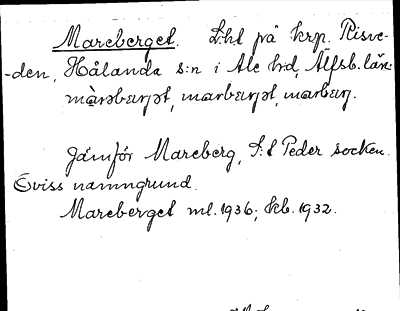 Mareberget. L:ht på krp. Risve-
-den, Hålanda s:n i Ale hd, Älfsb. län:
marbärjət, marbärjət, marbärj.
Jämför Mareberg, S:t Peder socken.
Oviss namngrund.
Mareberget ml. 1936; kb. 1932.